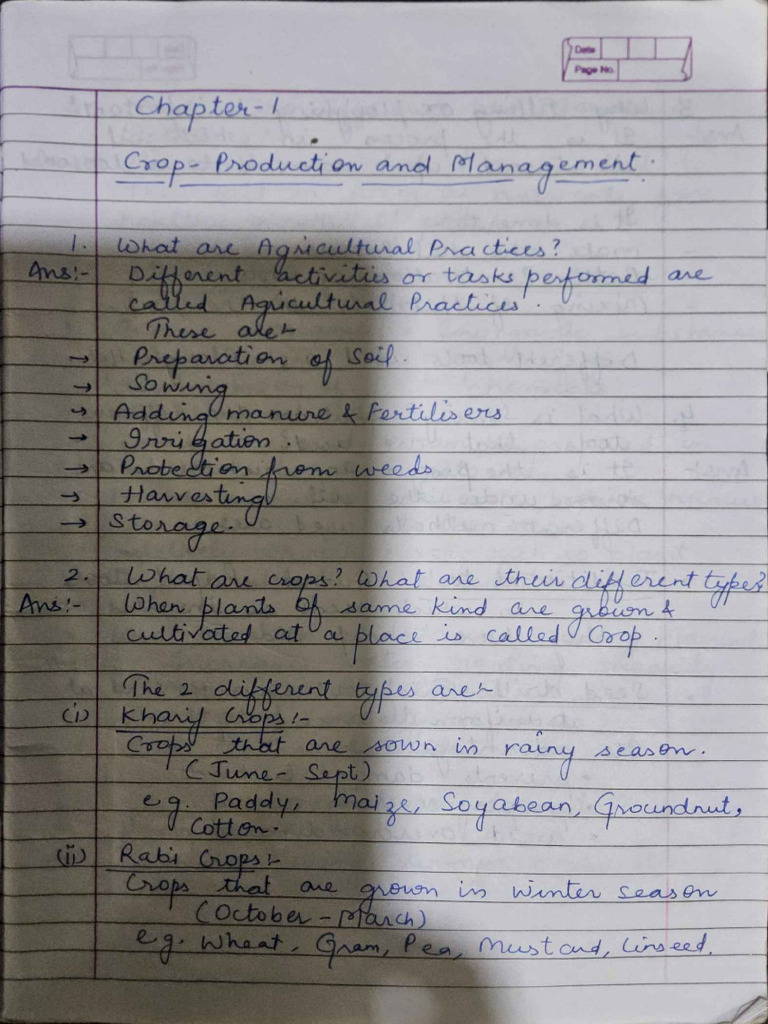 Date
Page No.
Chapter-1
Crop-Production and Management.
1. What are Agricultural Practices?
Ans:- Different activities or tasks performed are
called Agricultural Practices.
These are:-
→ Preparation of Soil.
→ Sowing
→ Adding manure & Fertilisers
→ Irrigation.
→ Protection from weeds
→ Harvesting
→ Storage.
2. What are crops? What are their different types?
Ans:- When plants of same kind are grown &
cultivated at a place is called Crop.
The 2 different types are:-
(i) Kharif Crops:-
Crops that are sown in rainy season.
(June - Sept)
e.g. Paddy, Maize, Soyabean, Groundnut,
Cotton.
(ii) Rabi Crops:-
Crops that are grown in winter season
(October - March)
e.g. Wheat, Gram, Pea, Mustard, Linseed.